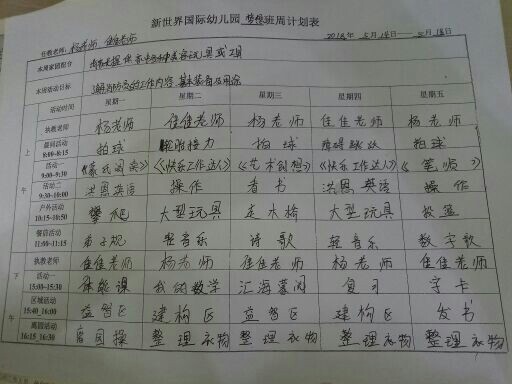 新世界国际幼儿园 梦想班周计划表
任教老师：杨老师 佳佳老师 2018年 5月14日 5月18日
本周家园配合
本周活动目标 消防员的工作内容 基本装备及用途
活动时间 星期一 星期二 星期三 星期四 星期五
上午
执教老师 杨老师 佳佳老师 杨老师 佳佳老师 杨老师
晨间活动 8:00-8:15 拍球 接力 拍球 障碍 拍球
活动一 9:00-9:30 《蒙氏阅读》 《快乐工作达人》 《艺术创想》 《快乐工作达人》
活动二 9:30-10:00 洪恩英语 操作 看书 洪恩英语 操作
户外活动 10:15-10:50 攀爬 大型玩具 走木桥 大型玩具 投篮
餐前活动 11:00-11:15 弟子规 轻音乐 诗歌 轻音乐 数字歌
下午
执教老师 佳佳老师 杨老师 佳佳老师 杨老师 佳佳老师
活动一 15:00-15:30 体能课 我的数学 汇海 复习 字卡
区域活动 15:40_16:00 益智区 建构区 益智区 建构区 发书
离园活动 16:15_16:30 离园操 整理衣物 整理衣物 整理衣物 整理衣物